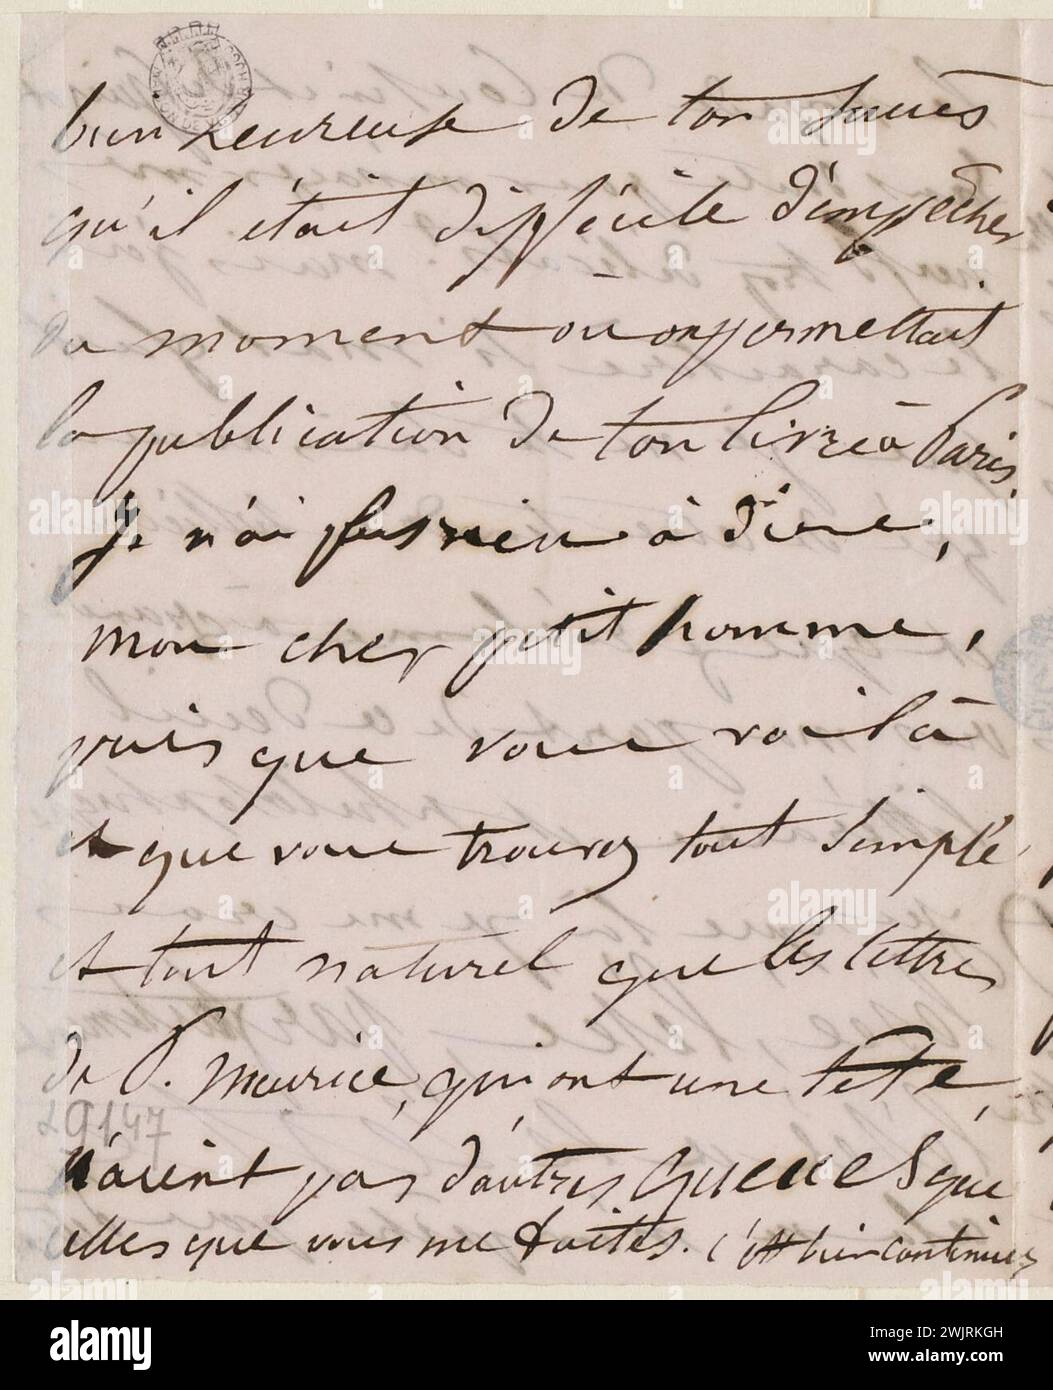 bien heureuse de ton succès
qu'il était difficile d'empêcher
du moment où on permettait
la publication de ton livre à Paris.
Je n'ai plus rien à dire,
mon cher petit homme,
puis que vous voilà
et que vous trouvez tout simple
et tout naturel que les lettres
de P. Meurice, qui ont une tête,
n'aient pas d'autres queues que
celles que vous me faites. C'est bien continuez
29147
alamy
Image ID: 2WJRKGH
www.alamy.com